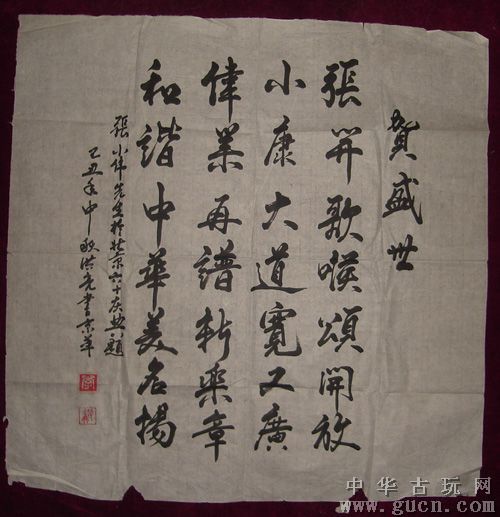 賀盛世
張开歌喉頌開放
小康大道寬又廣
偉業再譜新樂章
和諧中華美名揚
張小伟先生於北京六十庆典題
己丑年中秋洪亮書京華
中华古玩网
www.gucn.com